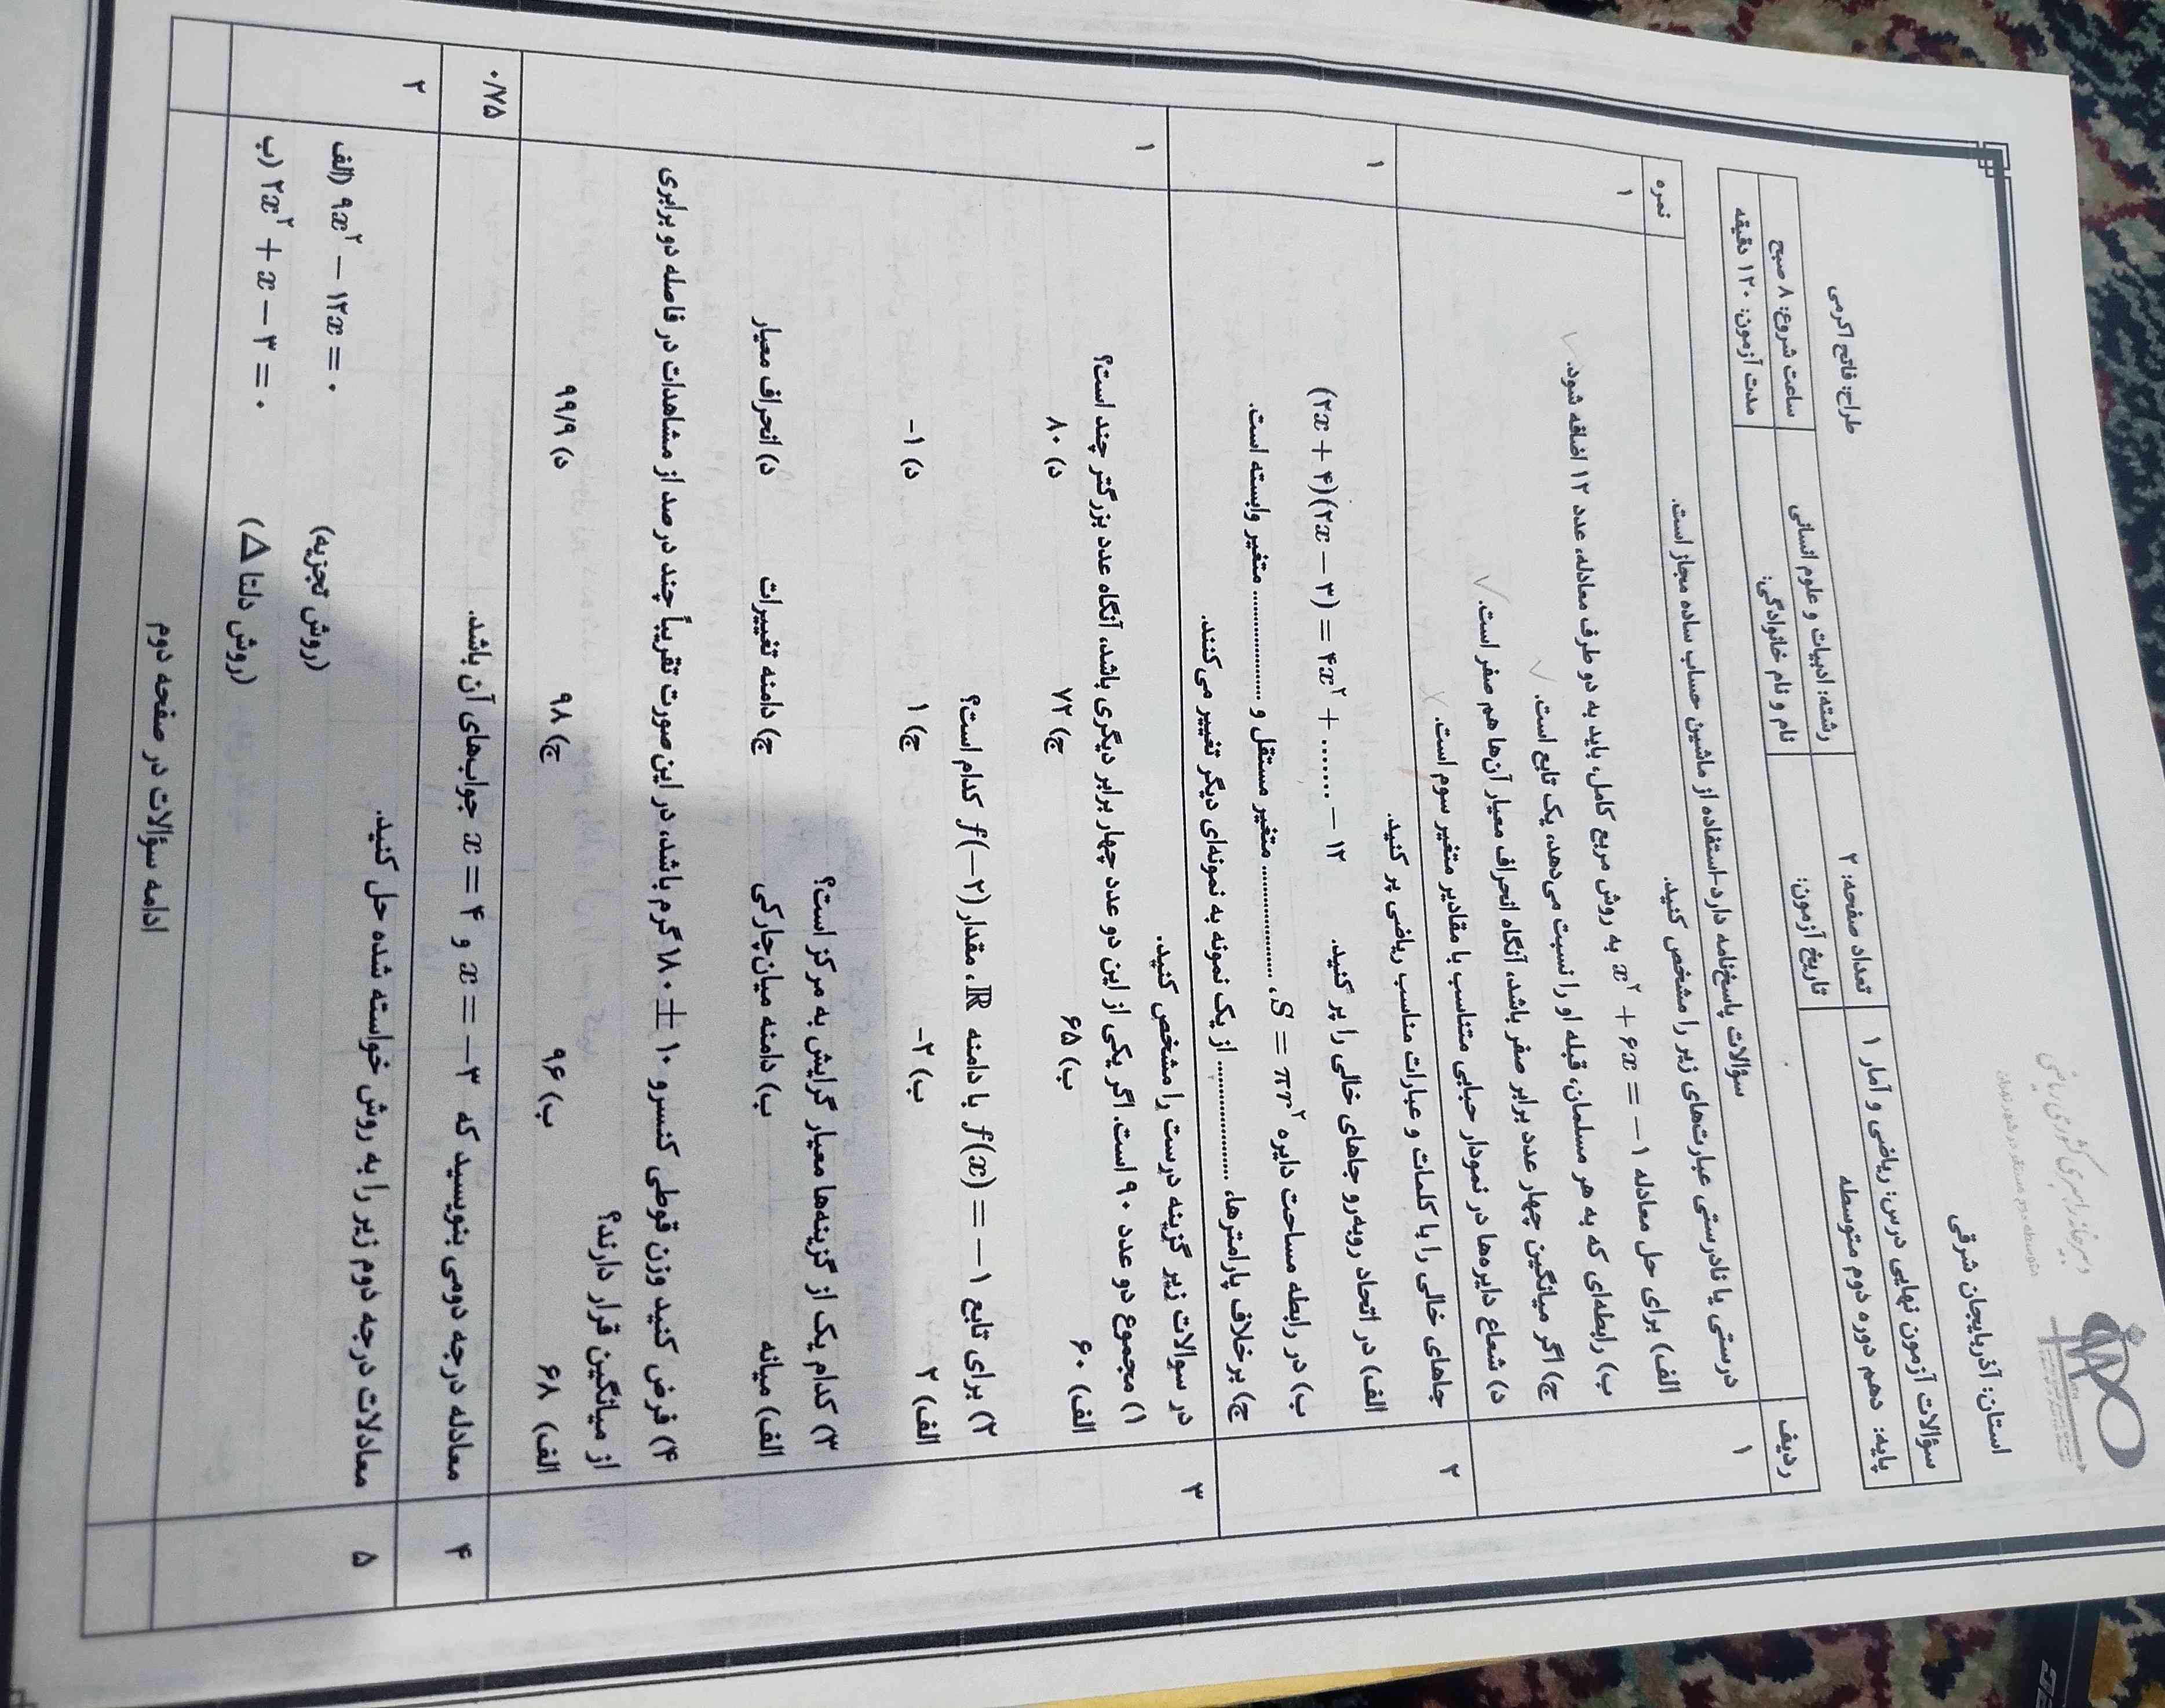 استان: آذربایجان شرقی
طراح: فاتح اکرمی
سؤالات آزمون نهایی درس: ریاضی و آمار ۱
تعداد صفحه: ۲
رشته: ادبیات و علوم انسانی
ساعت شروع: ۸ صبح
پایه: دهم دوره دوم متوسطه
تاریخ آزمون:
نام و نام خانوادگی:
مدت آزمون: ۱۲۰ دقیقه
ردیف
سؤالات پاسخ‌نامه دارد-استفاده از ماشین حساب ساده مجاز است.
نمره
۱
درستی یا نادرستی عبارت‌های زیر را مشخص کنید.
۱
الف) برای حل معادله x² + ۶x = −۱ به روش مربع کامل، باید به دو طرف معادله، عدد ۱۲ اضافه شود.
ب) رابطه‌ای که به هر مسلمان، قبله او را نسبت می‌دهد، یک تابع است.
ج) اگر میانگین چهار عدد برابر صفر باشد، آنگاه انحراف معیار آن‌ها هم صفر است.
د) شعاع دایره‌ها در نمودار حبابی متناسب با مقادیر متغیر سوم است.
۲
جاهای خالی را با کلمات و عبارات مناسب ریاضی پر کنید.
۱
الف) در اتحاد روبه‌رو جاهای خالی را پر کنید. (۲x + ۴)(۲x − ۳) = ۴x² + ...... − ۱۲
ب) در رابطه مساحت دایره S = πr²، ................ متغیر مستقل و ................ متغیر وابسته است.
ج) برخلاف پارامترها، ................ از یک نمونه به نمونه‌ای دیگر تغییر می‌کنند.
۳
در سوالات زیر گزینه درست را مشخص کنید.
۱
۱) مجموع دو عدد ۹۰ است. اگر یکی از این دو عدد چهار برابر دیگری باشد، آنگاه عدد بزرگتر چند است؟
الف) ۶۰ ب) ۶۵ ج) ۷۲ د) ۸۰
۲) برای تابع f(x) = −۱ با دامنه ℝ، مقدار f(−۲) کدام است؟
الف) ۲ ب) ۲- ج) ۱ د) ۱-
۳) کدام یک از گزینه‌ها معیار گرایش به مرکز است؟
الف) میانه ب) دامنه میان‌چارکی ج) دامنه تغییرات د) انحراف معیار
۴) فرض کنید وزن قوطی کنسرو ۱۰ ± ۱۸۰ گرم باشد، در این صورت تقریباً چند درصد از مشاهدات در فاصله دو برابری
از میانگین قرار دارند؟
الف) ۶۸ ب) ۹۶ ج) ۹۸ د) ۹۹/۹
۴
معادله درجه دومی بنویسید که x = −۳ و x = ۴ جواب‌های آن باشد.
۰/۷۵
۵
معادلات درجه دوم زیر را به روش خواسته شده حل کنید.
۲
الف) ۹x² − ۱۲x = ۰ (روش تجزیه)
ب) ۲x² + x − ۳ = ۰ (روش دلتا Δ)
ادامه سؤالات در صفحه دوم